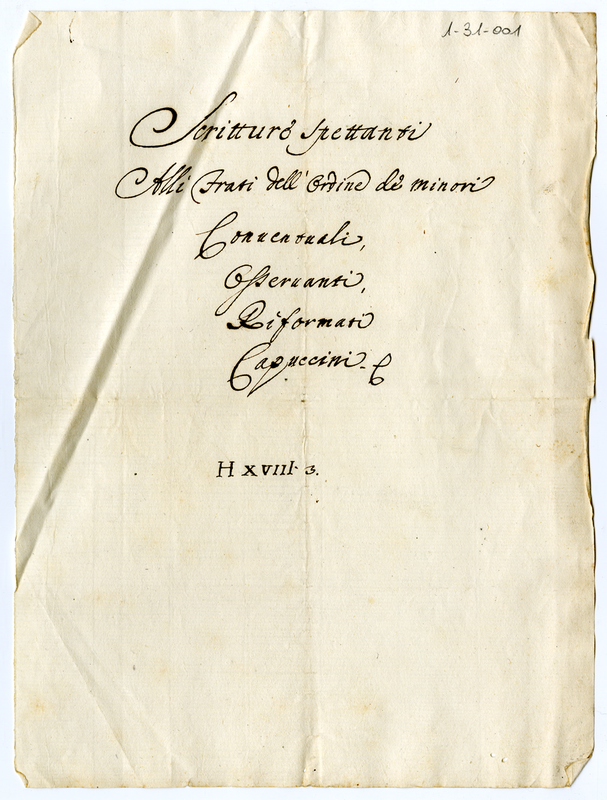 1-31-001
Scritture Spettanti
Alli Frati dell' Ordine de' minori
Conuentuali,
Osseruanti,
Riformati
Capuccini.
H XVIII. 3.